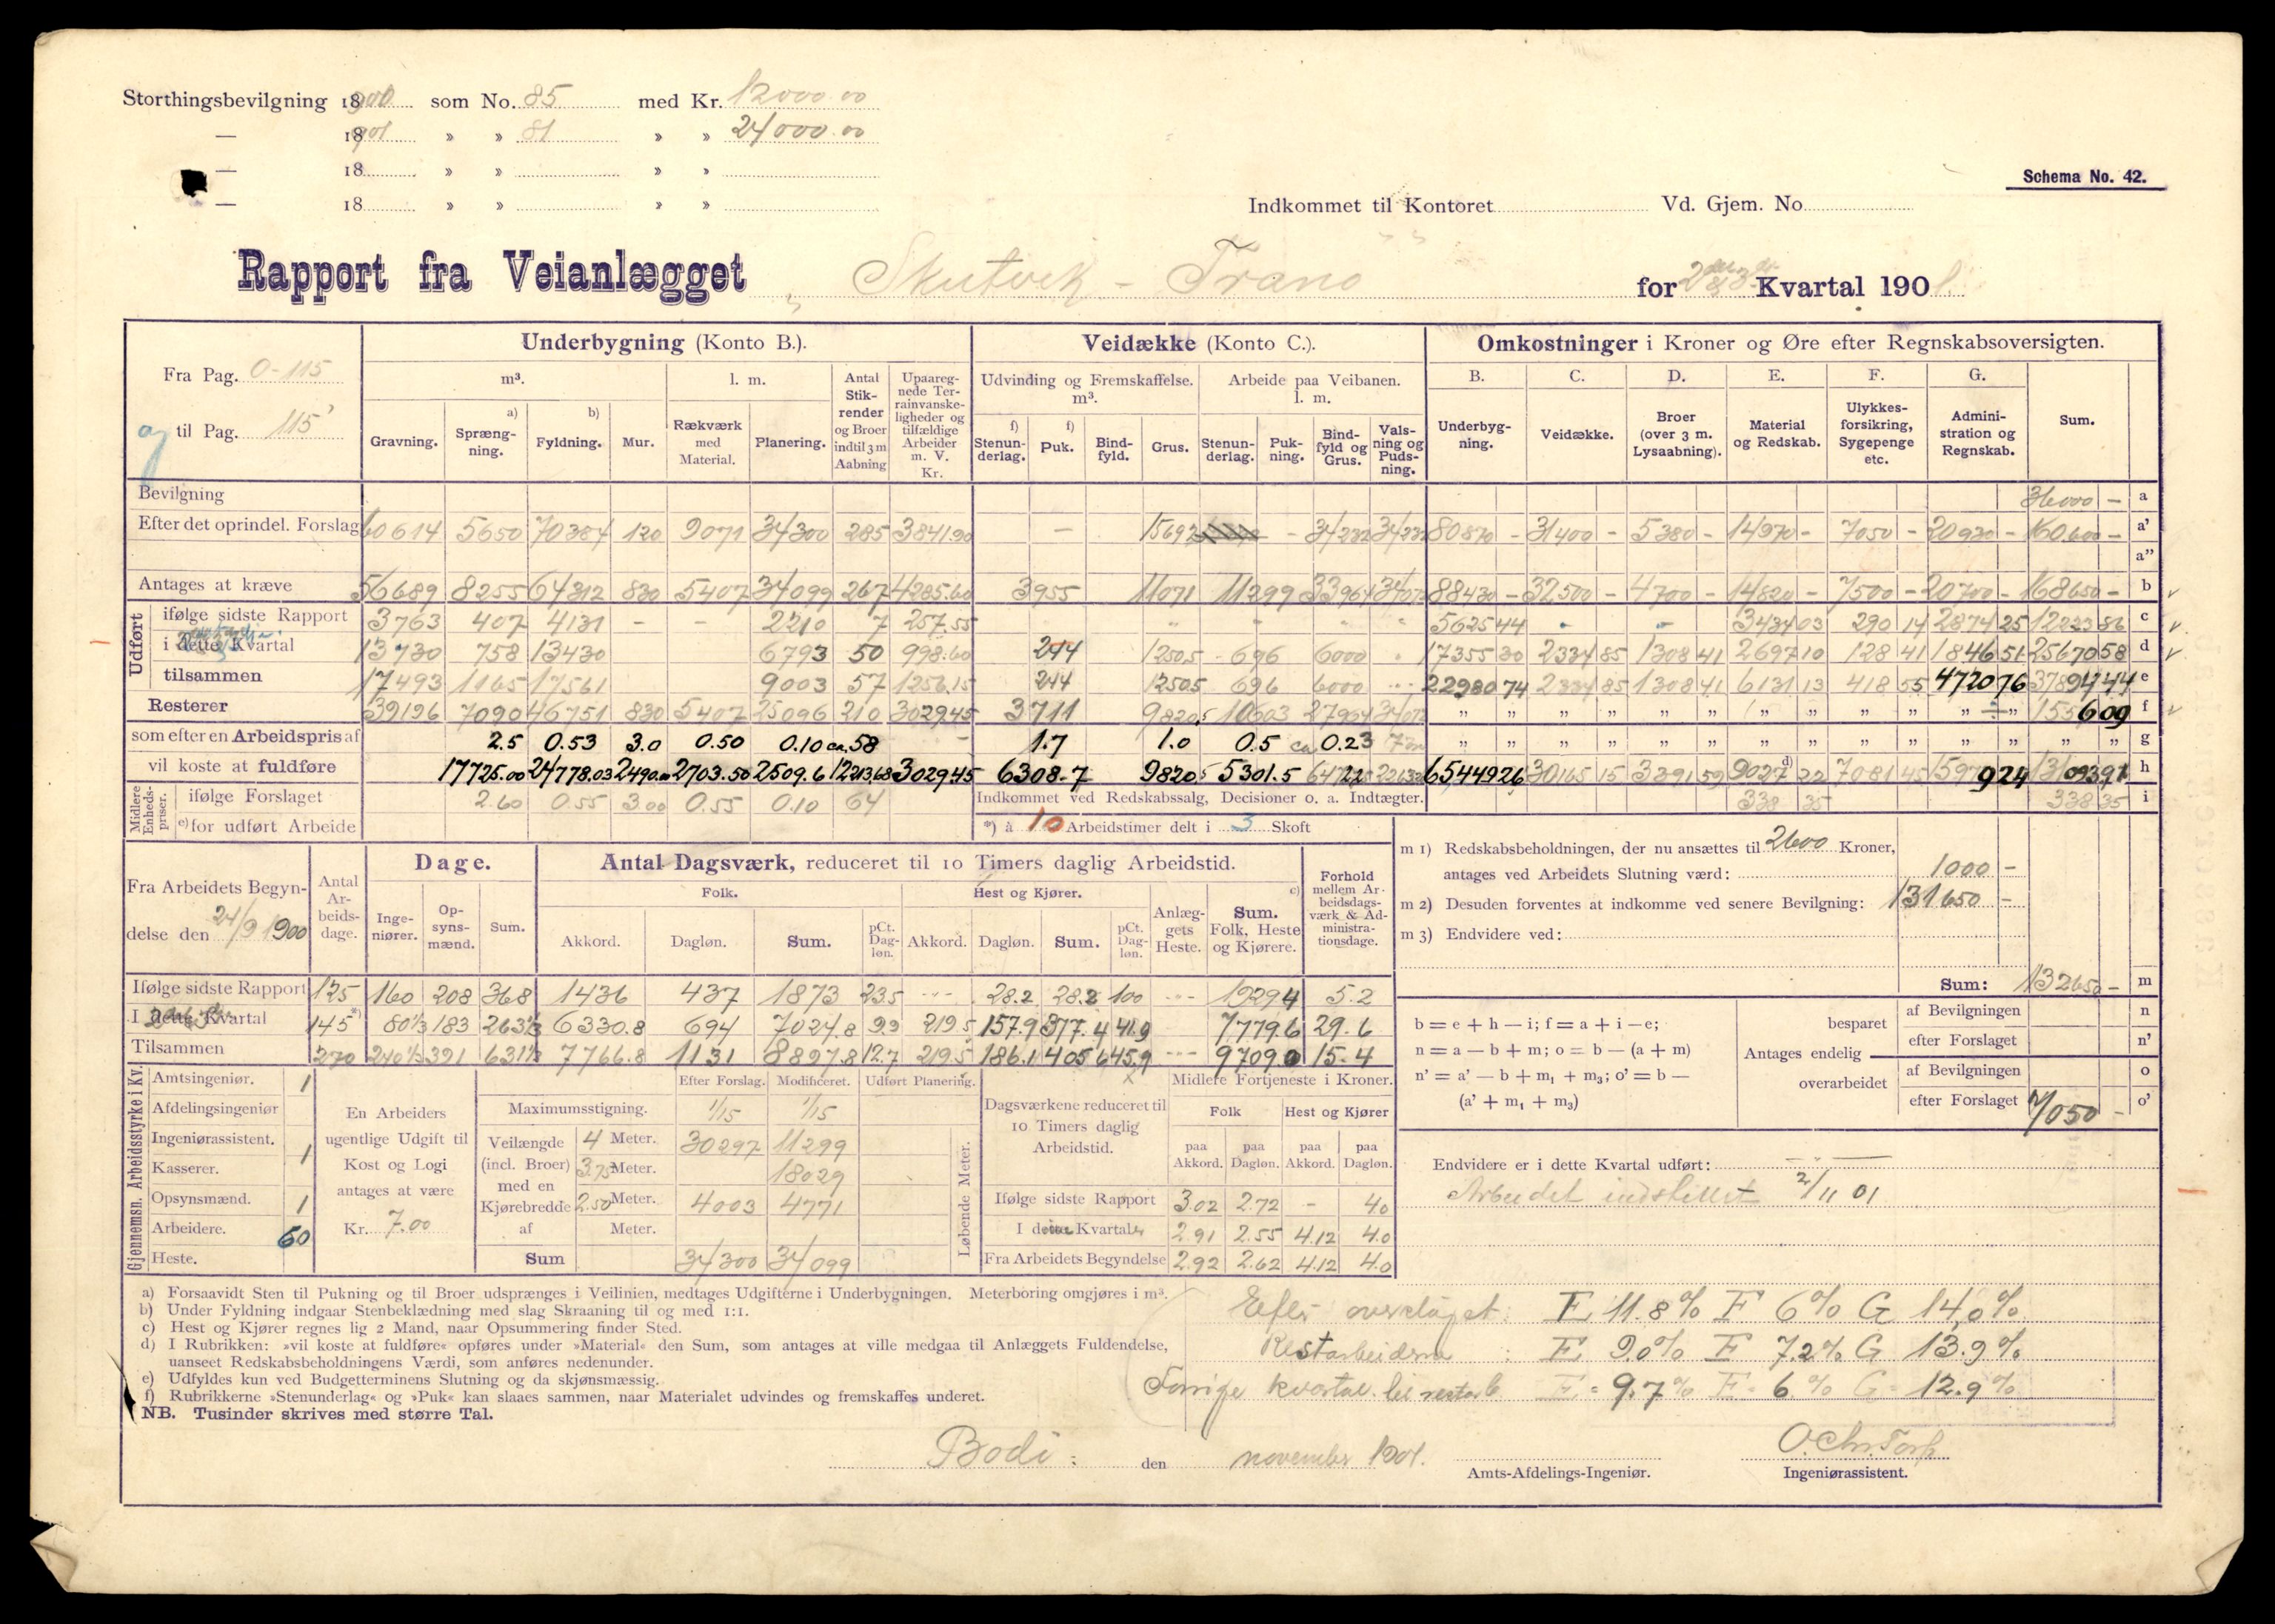 Storthingsbevilgning 1900 som No. 85 med Kr. 12000.00
— 1901 » » 81 » » 24000.00
— 18 » » » »
— 18 » » » »
Schema No. 42.
Indkommet til Kontoret Vd. Gjem. No
Rapport fra Veianlægget Skutvik - Tranø for Kvartal 1901.
Fra Pag. 0-115
og til Pag. 115'
Underbygning (Konto B.). Veidække (Konto C.). Omkostninger i Kroner og Øre efter Regnskabsoversigten.
m³. l. m. Antal Stikrender og Broer indtil 3 m Aabning Upaaregnede Terrainvanskeligheder og tilfældige Arbeider m. V. Kr. Udvinding og Fremskaffelse. m³. Arbeide paa Veibanen. l. m. B. C. D. E. F. G. Sum.
Gravning. a) Sprængning. b) Fyldning. Mur. Rækværk med Material. Planering. f) Stenunderlag. f) Puk. Bindfyld. Grus. Stenunderlag. Pukning. Bindfyld og Grus. Valsning og Pudsning. Underbygning. Veidække. Broer (over 3 m. Lysaabning). Material og Redskab. Ulykkesforsikring, Sygepenge etc. Administration og Regnskab.
Bevilgning 36000 — a
Efter det oprindel. Forslag 60614 5650 70384 120 9071 34300 285 3841.90 — 15692 - 34232 34232 80870 - 31400 - 5380 - 14970 - 7050 - 20930 - 160.600 - a'
a"
Antages at kræve 56689 8255 64312 830 5407 34099 267 4285.60 3955 11071 11299 33964 34072 88430 - 32500 - 4700 - 14820 - 7500 - 20700 - 168650 - b
Udført
ifølge sidste Rapport 3763 407 4131 - - 2210 7 257.55 5625 44 - - 3434 03 290 14 2874 25 12223 86 c
i dette Kvartal 13730 758 13430 6793 50 998.60 244 1250.5 696 6000 17355 30 2334 85 1308 41 2697 10 128 41 1846 51 25670 58 d
tilsammen 17493 1165 17561 9003 57 1256.15 244 1250.5 696 6000 22980 74 2334 85 1308 41 6131 13 418 55 4720 76 37894 44 e
Resterer 39196 7090 46751 830 5407 25096 210 3029.45 3711 9820.5 10603 27964 34072 „ „ „ „ „ „ „ „ „ „ „ 155609 f
som efter en Arbeidspris af 2.5 0.53 3.0 0.50 0.10 ca. 58 - 1.7 1.0 0.5 ca 0.23 „ „ „ „ „ „ „ „ „ „ „ „ „ „ g
vil koste at fuldføre 17725.00 24778.03 2490.00 2703.50 2509.6 12213.68 3029.45 6308.7 9820.5 5301.5 65449 26 30165 15 3391 59 9027 22 7081 45 h
Midlere Enhedspriser.
ifølge Forslaget 2.60 0.55 3.00 0.55 0.10 64 Indkommet ved Redskabssalg, Decisioner o. a. Indtægter. 338 35 338 35 i
e) for udført Arbeide *) à 10 Arbeidstimer delt i 3 Skoft
Fra Arbeidets Begyndelse den 24/9 1900
Antal Arbeidsdage. Dage. Antal Dagsværk, reduceret til 10 Timers daglig Arbeidstid. Forhold mellem Arbeidsdagsværk & Administrationsdage.
Folk. Hest og Kjører. c)
Ingeniører. Opsynsmænd. Sum. Akkord. Dagløn. Sum. pCt. Dagløn. Akkord. Dagløn. Sum. pCt. Dagløn. Anlæggets Heste. Sum. Folk, Heste og Kjørere.
Ifølge sidste Rapport 125 160 208 368 1436 437 1873 23.5 - 28.2 28.2 100 - 1929.4 5.2
I dette Kvartal 145 *) 80⅓ 183 263⅓ 6330.8 694 7024.8 9.9 219.5 157.9 377.4 41.9 7779.6 29.6
Tilsammen 270 240⅓ 391 631⅓ 7766.8 1131 8897.8 12.7 219.5 186.1 405.6 45.9 - 9709.0 15.4
m 1) Redskabsbeholdningen, der nu ansættes til 2600 Kroner,
antages ved Arbeidets Slutning værd: 1000 -
m 2) Desuden forventes at indkomme ved senere Bevilgning: 131650 -
m 3) Endvidere ved:
Sum: 132650 - m
b = e + h — i; f = a + i — e;
n = a — b + m; o = b — (a + m)
n' = a' — b + m₁ + m₃; o' = b —
(a' + m₁ + m₃)
Antages endelig
besparet af Bevilgningen n
efter Forslaget n'
overarbeidet af Bevilgningen o
efter Forslaget 7050 - o'
Gjennemsn. Arbeidsstyrke i Kv.
Amtsingeniør. 1
Afdelingsingeniør
Ingeniørassistent. 1
Kasserer.
Opsynsmænd. 1
Arbeidere. 60
Heste.
En Arbeiders
ugentlige Udgift til
Kost og Logi
antages at være
Kr. 7.00
Efter Forslag. Modificeret. Udført Planering.
Maximumsstigning. 1/15 1/15
Veilængde (incl. Broer) med en Kjørebredde af
4 Meter. 30297 11299
3.75 Meter. 18029
2.50 Meter. 4003 4771
Meter.
Sum 34300 34099
Løbende Meter.
Dagsværkene reduceret til
10 Timers daglig
Arbeidstid.
Midlere Fortjeneste i Kroner.
Folk Hest og Kjører
paa Akkord. paa Dagløn. paa Akkord. paa Dagløn.
Ifølge sidste Rapport 3.02 2.72 - 4.0
I dette Kvartal 2.91 2.55 4.12 4.0
Fra Arbeidets Begyndelse 2.92 2.62 4.12 4.0
Endvidere er i dette Kvartal udført:
Arbeidet indstillet 2/11 01
a) Forsaavidt Sten til Pukning og til Broer udsprænges i Veilinien, medtages Udgifterne i Underbygningen. Meterboring omgjøres i m³.
b) Under Fyldning indgaar Stenbeklædning med slag Skraaning til og med 1:1.
c) Hest og Kjører regnes lig 2 Mand, naar Opsummering finder Sted.
d) I Rubrikken: »vil koste at fuldføre« opføres under »Material« den Sum, som antages at ville medgaa til Anlæggets Fuldendelse,
uanseet Redskabsbeholdningens Værdi, som anføres nedenunder.
e) Udfyldes kun ved Budgetterminens Slutning og da skjønsmæssig.
f) Rubrikkerne »Stenunderlag« og »Puk« kan slaaes sammen, naar Materialet udvindes og fremskaffes underet.
NB. Tusinder skrives med større Tal.
Efter overslaget: E 11.8% F 6% G 14,0%
Restarbeiderne : E 9.0% F 7.2% G 13.9%
Forrige kvartal. til restarb. E = 9.7% F = 6.% G = 12.9%
Bodö. den november 1901.
Amts-Afdelings-Ingeniør.
O. Chr. Torp
Ingeniørassistent.